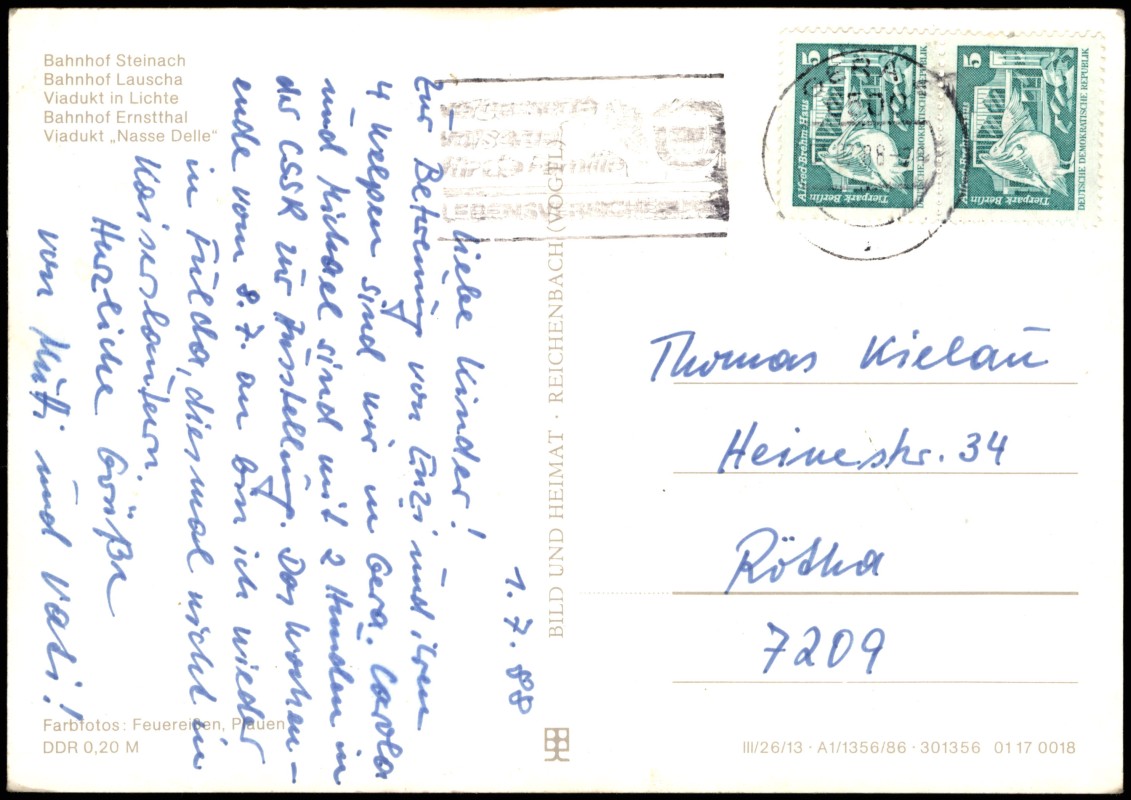 Bahnhof Steinach
Bahnhof Lauscha
Viadukt in Lichte
Bahnhof Ernstthal
Viadukt „Nasse Delle“
1. 7. 88
Liebe Kinder!
Zur Betreuung von Enzi und ihren
4 Welpen sind wir in Gera. Carola
und Michael sind mit 2 Hunden in
der CSSR zur Ausstellung. Das Wochen-
ende vom 8. 7. an bin ich wieder
in Fulda, diesmal nicht in
Kaiserslautern.
Herzliche Grüße
von Mutti und Vati!
Farbfotos: Feuereißen, Plauen
DDR 0,20 M
BILD UND HEIMAT · REICHENBACH (VOGTL)
5
Alfred-Brehm-Haus
Tierpark Berlin
DEUTSCHE DEMOKRATISCHE REPUBLIK
5
Alfred-Brehm-Haus
Tierpark Berlin
DEUTSCHE DEMOKRATISCHE REPUBLIK
GERA
Thomas Kielau
Heinestr. 34
Rötha
7209
III/26/13 · A1/1356/86 · 301356 01 17 0018